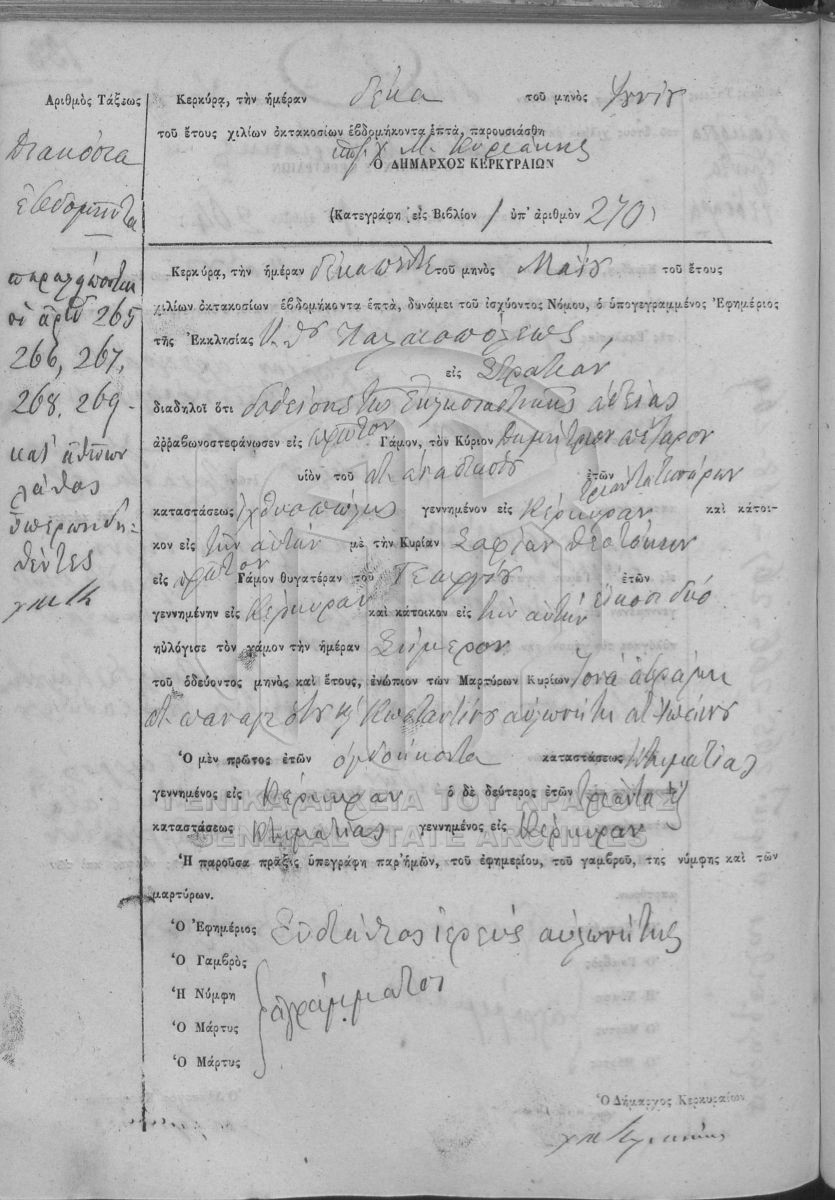 Ἀριθμὸς Τάξεως
Διακόσια
ἑβδομῆντα
παραλείπονται
οἱ ἀριθ 265
266, 267,
268, 269
κατ'
λάθος
Κερκύρᾳ, τὴν ἡμέραν δέκα τοῦ μηνὸς Ἰουνίου
τοῦ ἔτους χιλίων ὀκτακοσίων ἑβδομήκοντα ἑπτά, παρουσιάσθη
Ὁ ΔΗΜΑΡΧΟΣ ΚΕΡΚΥΡΑΙΩΝ
(Κατεγράφη εἰς Βιβλίον 1 ὑπ' ἀριθμὸν 270)
Κερκύρᾳ, τὴν ἡμέραν δέκα πέντε τοῦ μηνὸς Μαΐου τοῦ ἔτους
χιλίων ὀκτακοσίων ἑβδομήκοντα ἑπτά, δυνάμει τοῦ ἰσχύοντος Νόμου, ὁ ὑπογεγραμμένος Ἐφημέριος
τῆς Ἐκκλησίας Παλαιοπόλεως
εἰς Στρατιάν
διαδηλοῖ ὅτι δοθείσης τῆς Ἐκκλησιαστικῆς ἀδείας
ἀρραβωνοστεφάνωσεν εἰς πρῶτον Γάμον, τὸν Κύριον Δημήτριον
υἱὸν τοῦ ἐτῶν τριάντα τεσσάρων
καταστάσεως ἰχθυοπώλης γεννημένον εἰς Κέρκυραν καὶ κάτοι-
κον εἰς τὴν αὐτὴν μὲ τὴν Κυρίαν Σοφίαν Θεοτόκην
εἰς πρῶτον Γάμον θυγατέραν τοῦ Γεωργίου ἐτῶν
γεννημένην εἰς Κέρκυραν καὶ κάτοικον εἰς τὴν αὐτὴν εἴκοσι δύο
ηὐλόγισε τὸν γάμον τὴν ἡμέραν Σήμερον
τοῦ ὁδεύοντος μηνὸς καὶ ἔτους, ἐνώπιον τῶν Μαρτύρων Κυρίων
Ὁ μὲν πρῶτος ἐτῶν ὀγδοήκοντα καταστάσεως Κτηματίας
γεννημένος εἰς Κέρκυραν ὁ δὲ δεύτερος ἐτῶν τριάντα
καταστάσεως Κτηματίας γεννημένος εἰς Κέρκυραν
Ἡ παροῦσα πρᾶξις ὑπεγράφη παρ' ἡμῶν, τοῦ ἐφημερίου, τοῦ γαμβροῦ, της νύμφης καὶ τῶν
μαρτύρων.
Ὁ Ἐφημέριος Εὐστάθιος ἱερεὺς αὐλωνίτης
Ὁ Γαμβρὸς
Ἡ Νύμφη ἀγράμματοι
Ὁ Μάρτυς
Ὁ Μάρτυς
Ὁ Δήμαρχος Κερκυραίων
ΓΕΝΙΚΑ ΑΡΧΕΙΑ ΤΟΥ ΚΡΑΤΟΥΣ
GENERAL STATE ARCHIVES